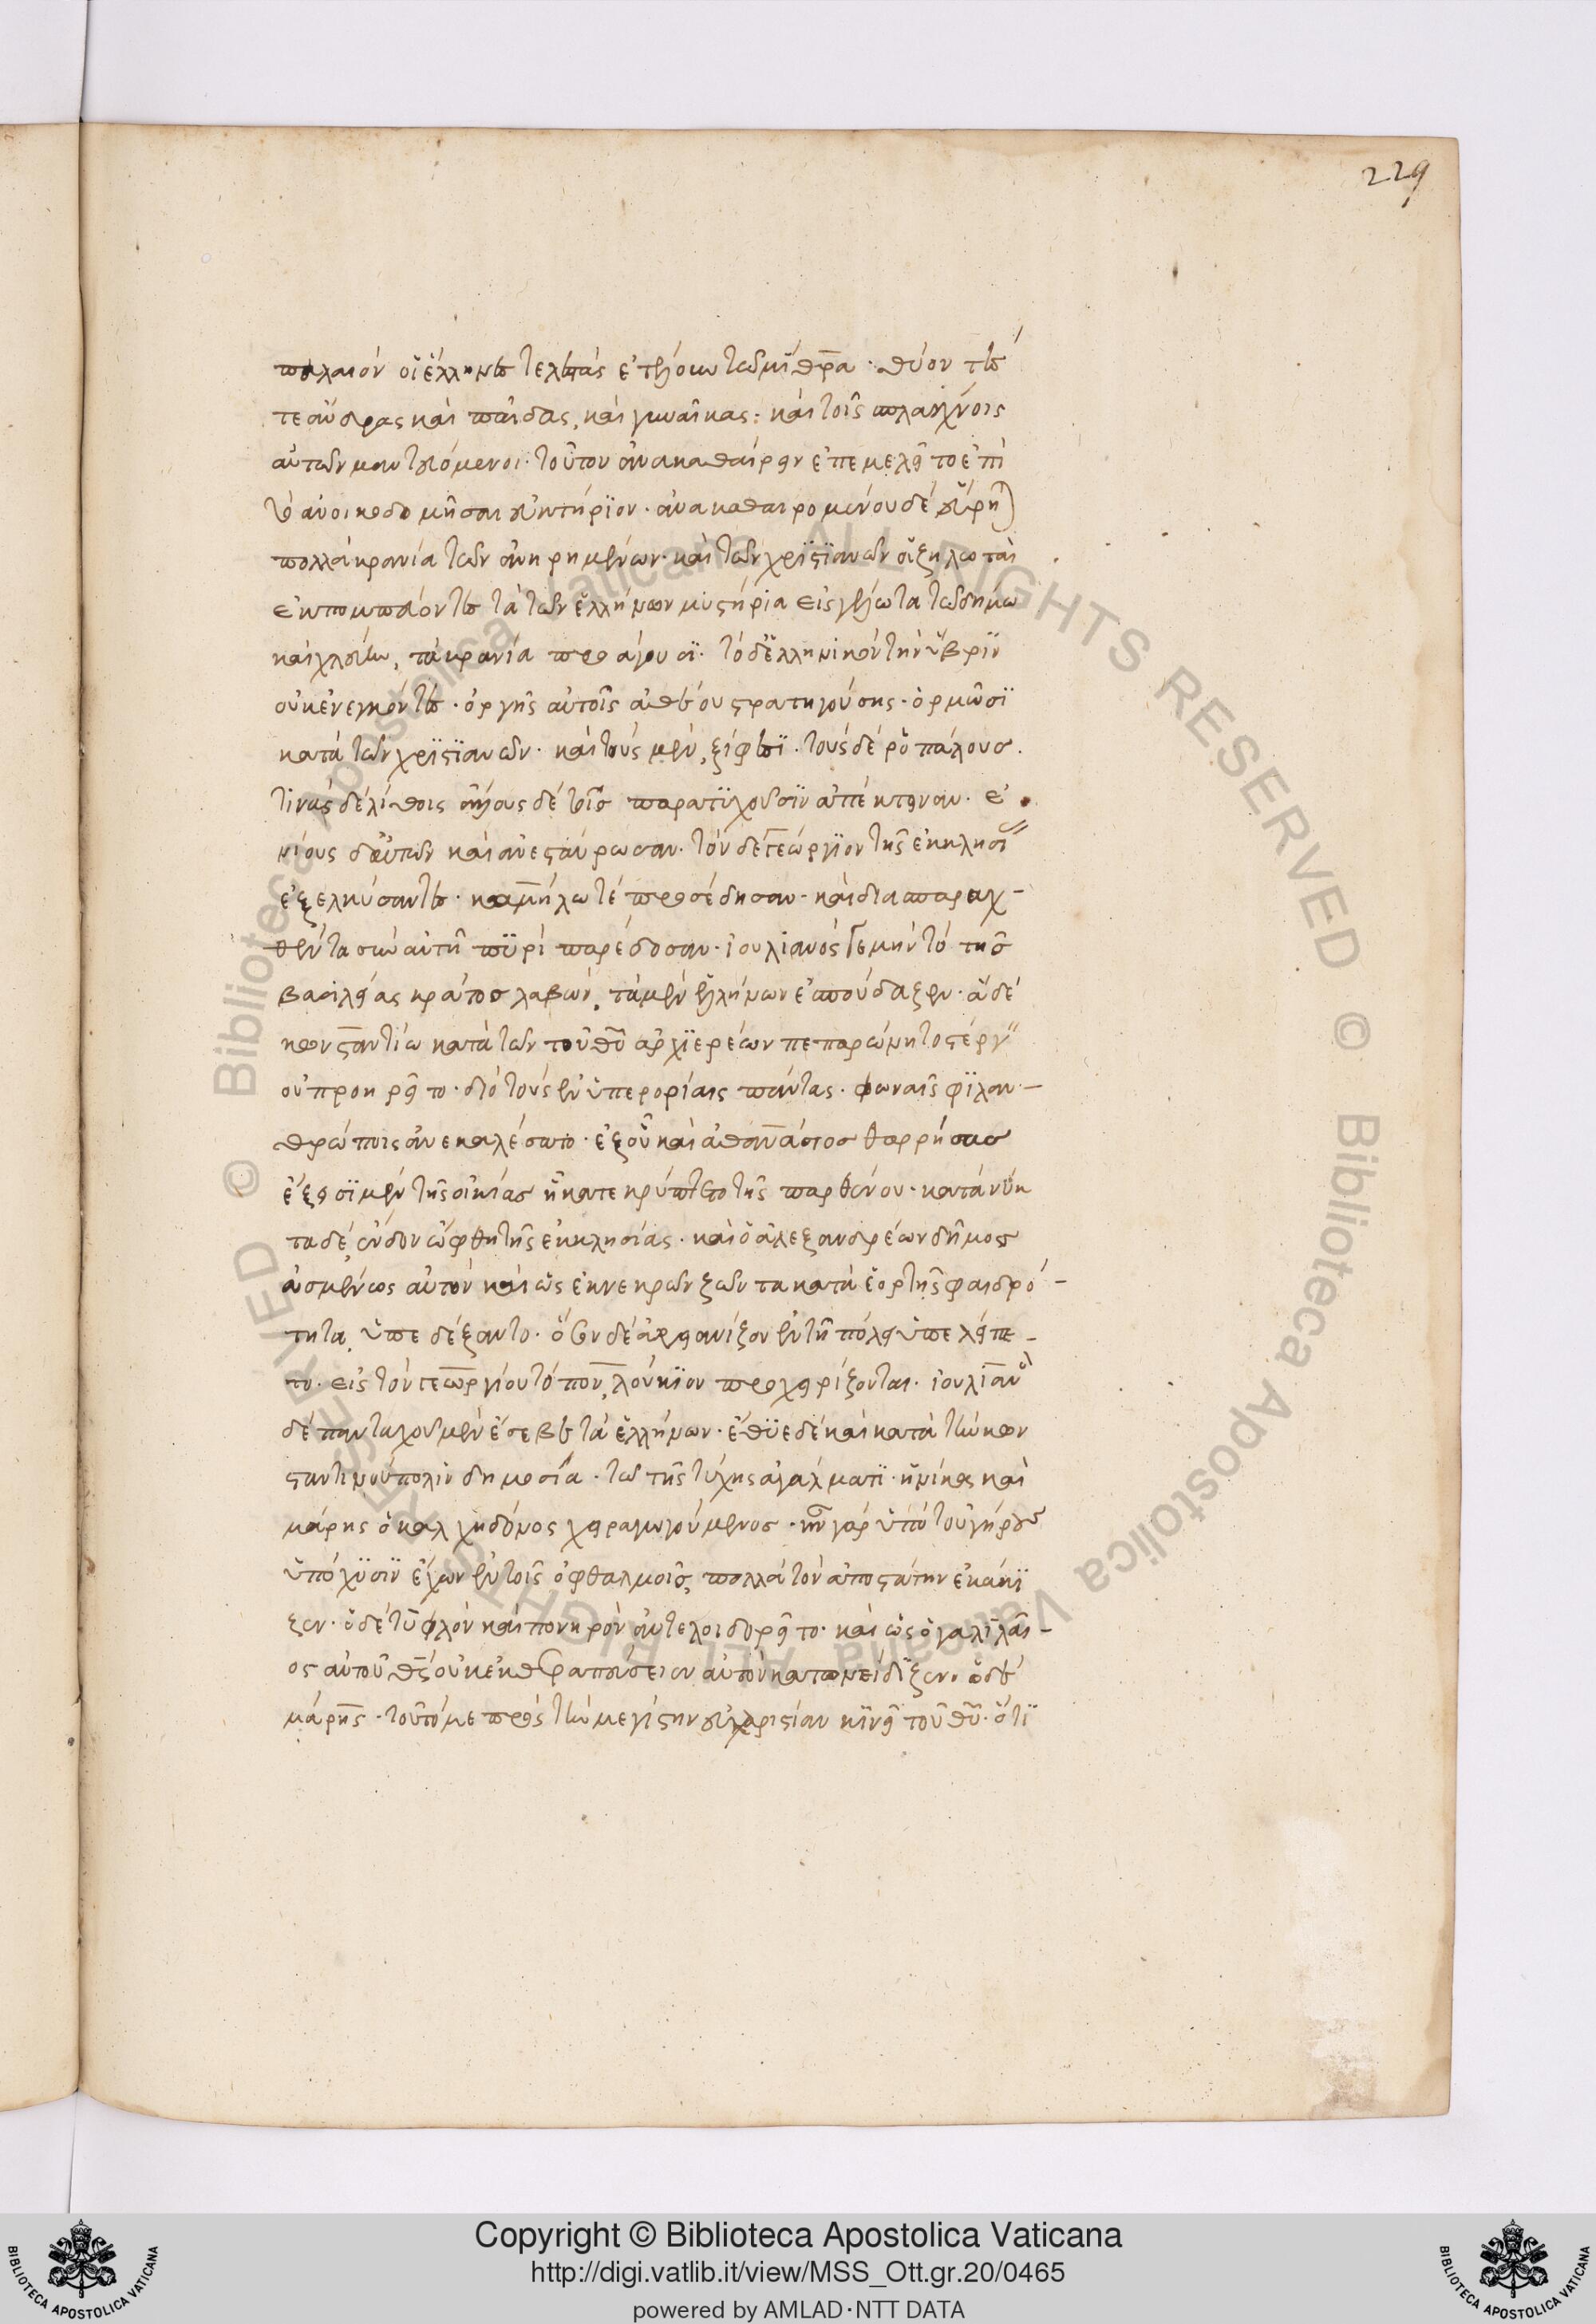 229
παλαιόν οἱ ἕλληνες τελετάς ἐτέλουν τῶ μίθρα · θύοντες
τε ἄνδρας καὶ παῖδας, καὶ γυναῖκας · καὶ τοῖς σπλάγχνοις
αὐτῶν μαντευόμενοι · τοῦτον ἀνακαθαίρειν ἐπεμελεῖτο ἐπὶ
τὸ ἀνοικοδομῆσαι εὐκτήριον · ἀνακαθαιρομένου δὲ εὕρηται
πολλὰ κρανία τῶν ἀνηρημένων · καὶ τῶν χριστιανῶν οἱ ζηλωταὶ
ἐκπομπεύοντες τὰ τῶν ἑλλήνων μυστήρια εἰς γέλωτα τῶ δήμω
καὶ χλεύην, τὰ κρανία προάγουσι · τὸ δ' ἑλληνικὸν τὴν ὕβριν
οὐκ ἐνεγκόντες · ὀργῆς αὐτοῖς ἀθέου στρατηγούσης · ὁρμῶσι
κατὰ τῶν χριστιανῶν · καὶ τοὺς μὲν, ξίφεσι · τοὺς δὲ ῥοπάλους ·
τινὰς δὲ λίθοις ἄλλους δὲ τοῖς παρατυχοῦσιν ἀπέκτειναν · ἐ
νίους δ' αὐτῶν καὶ ἀνεσταύρωσαν · τὸν δὲ γεώργιον τῆς ἐκκλησίας
ἐξελκύσαντες · καμήλω τε προσέδησαν · καὶ διασπαραχ-
θέντα σὺν αὐτῆ πυρὶ παρέδοσαν · ἰουλιανός γε μὴν τὸ τῆς
βασιλείας κράτος λαβών, τὰ μὲν ἑλλήνων ἐσπούδαζεν · ἃ δὲ
κωνσταντίω κατὰ τῶν τοῦ θῦ ἀρχιερέων πεπαρώνητο στέργειν
οὐ προηρεῖτο · διὸ τοὺς ἐν ὑπερορίαις πάντας · φωναῖς φιλαν-
θρώποις ἀνεκαλέσατο · ἐξ οὗ καὶ ἀθανάσιος θαρρήσας
ἔξεισι μὲν τῆς οἰκίας ἧ κατεκρύπτετο τῆς παρθένου · κατὰ νύκ
τα δὲ, ἔνδον ὤφθη τῆς ἐκκλησίας · καὶ ὁ ἀλεξανδρέων δῆμος
ἀσμένως αὐτὸν καὶ ὡς ἐκ νεκρῶν ζῶντα κατὰ ἑορτῆς φαιδρό-
τητα, ὑπεδέξαντο · ὅθεν δὲ ἀρειανίζον ἐν τῆ πόλει ὑπελείπε-
το · εἰς τὸν γεωργίου τόπον, λούκιον προχειρίζονται · ἰουλιανὸς
δὲ πανταχοῦ μὲν ἔσεβε τὰ ἑλλήνων · ἔθυε δὲ καὶ κατὰ τὴν κων
σταντινούπολιν δημοσία · τῶ τῆς τύχης ἀγάλματι · ἡνίκα καὶ
μάρης ὁ καλχηδόνος χειραγωγούμενος · ἦν γὰρ ὑπὸ τοῦ γήρως
ὑπόχυσιν ἔχων ἐν τοῖς ὀφθαλμοῖς, πολλὰ τὸν ἀποστάτην ἐκάκι
ζεν · ὁ δὲ τυφλὸν καὶ πονηρὸν ἀντελοιδορεῖτο · καὶ ὡς ὁ γαλιλαῖ-
ος αὐτοῦ θς οὐκ ἐκθεραπεύσειεν αὐτὸν κατωνείδιζεν · ὁ δὲ
μάρης · τοῦτό με πρὸς τὴν μεγίστην εὐχαριστίαν κινεῖ τοῦ θῦ · ὅτι
Copyright © Biblioteca Apostolica Vaticana
http://digi.vatlib.it/view/MSS_Ott.gr.20/0465
powered by AMLAD·NTT DATA